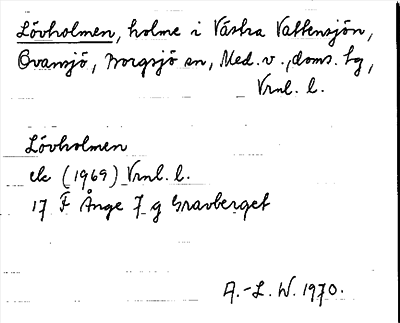 Lövholmen, holme i Västra Vattensjön,
Ovansjö, Borgsjö sn, Med. v., doms. lg,
Vrnl. l.
Lövholmen
ek (1969) Vrnl. l.
17 F Ånge 7 g Gravberget
A.-L. W. 1970.